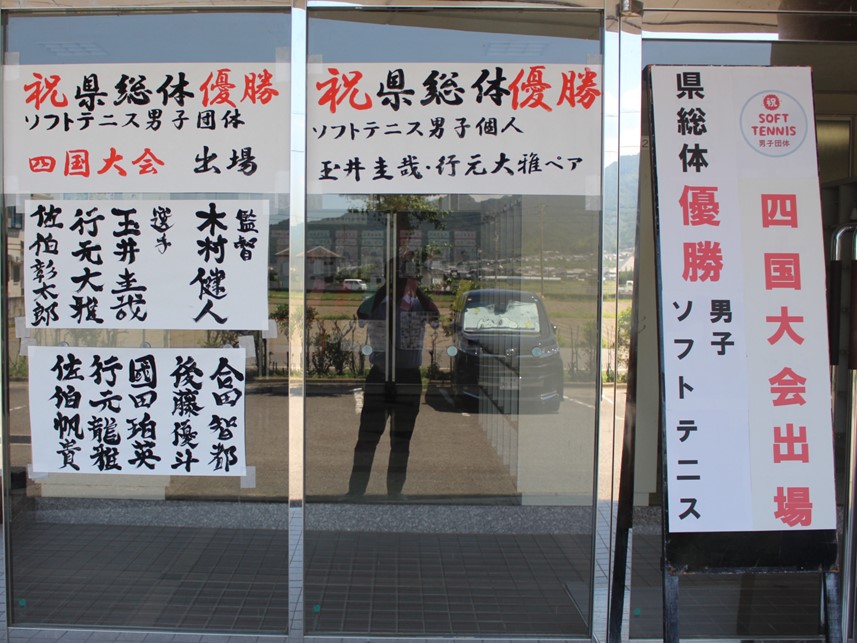 祝県総体優勝
ソフトテニス男子団体
四国大会 出場
監督
木村健人
選手
玉井圭哉
行元大雅
佐伯彰太郎
合田智都
後藤優斗
國田珀英
行元龍雅
佐伯帆貴
祝県総体優勝
ソフトテニス男子個人
玉井圭哉・行元大雅ペア
祝
SOFT
TENNIS
男子団体
四国大会出場
県総体優勝
男子
ソフトテニス